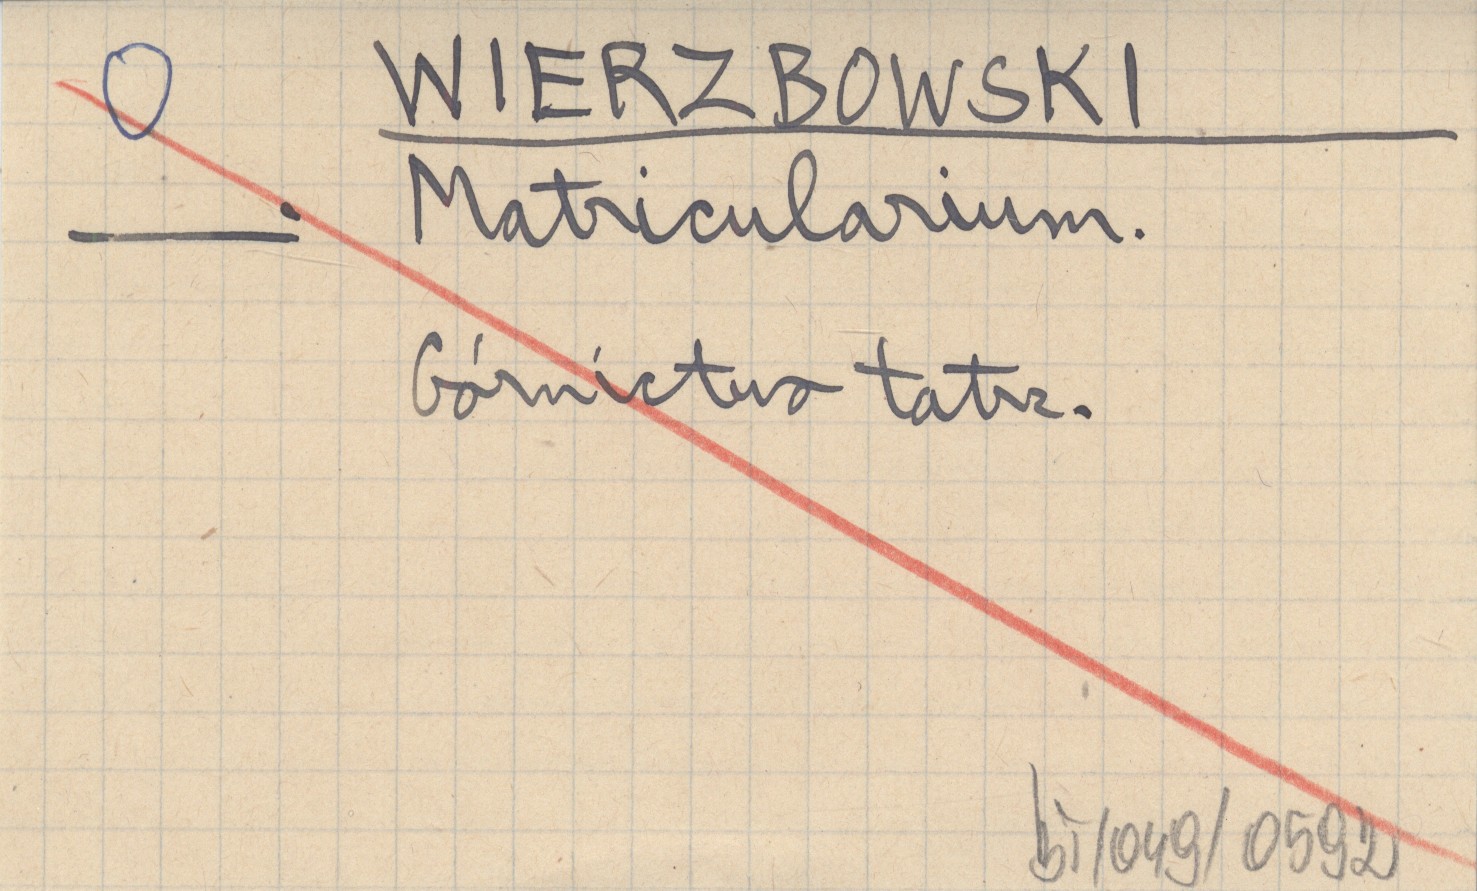 WIERZBOWSKI
Matricularium.
Górnictwo tatrz.
bi/049/0592